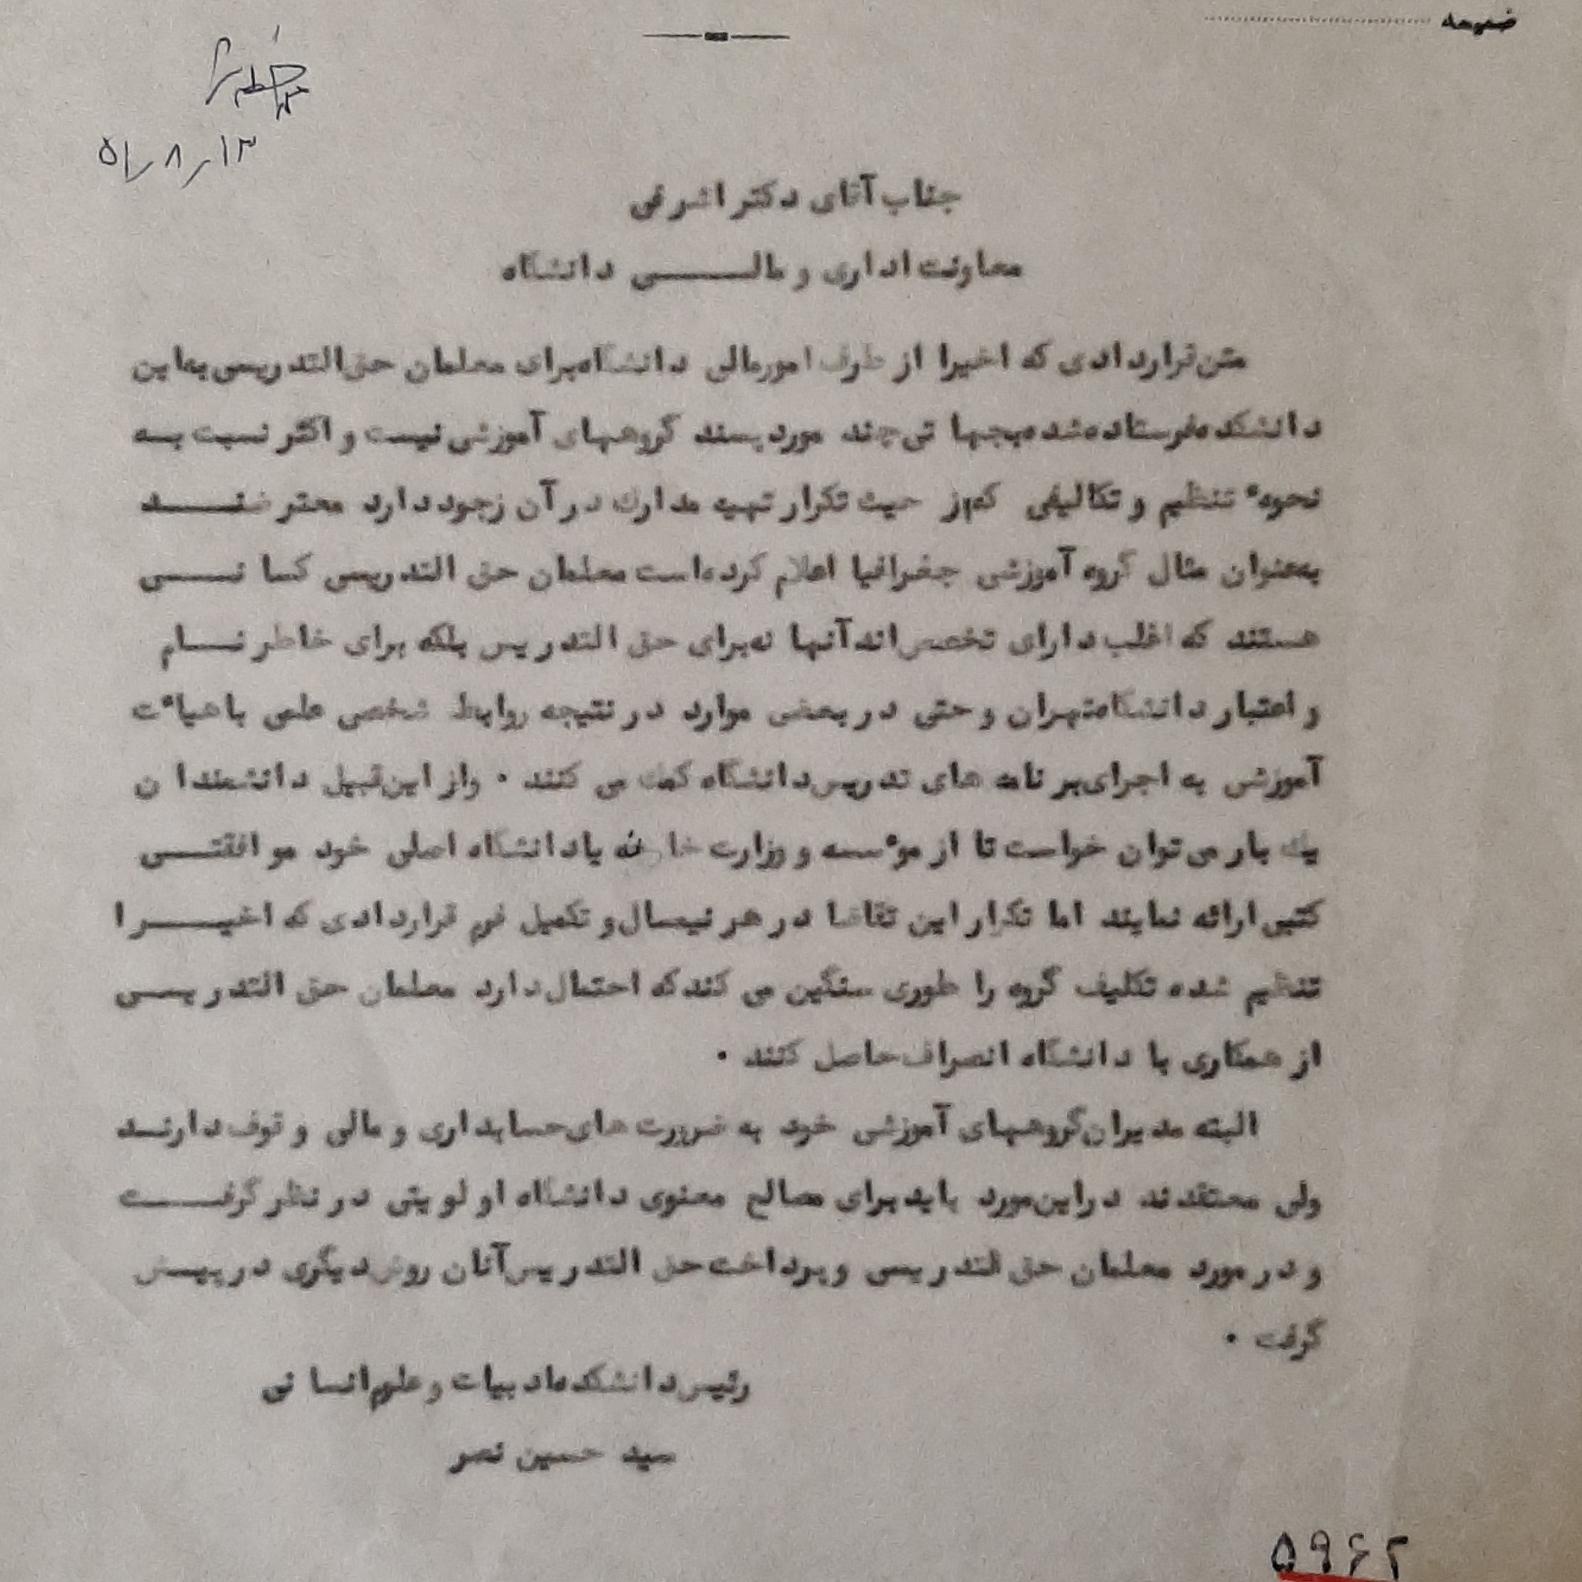 ضمیمه
۵۱/۸/۱۳
جناب آقای دکتر اشرفی
معاونت اداری و مالی دانشگاه
متن قراردادی که اخیرا از طرف امور مالی دانشگاه برای معلمان حق التدریسی به این
دانشکده فرستاده شده بجهاتی چند مورد پسند گروههای آموزشی نیست و اکثر نسبت به
نحوهٔ تنظیم و تکالیفی که از حیث تکرار تهیه مدارک در آن وجود دارد معترضند
به عنوان مثال گروه آموزشی جغرافیا اعلام کرده است معلمان حق التدریسی کسانی
هستند که اغلب دارای تخصص اند آنها نه برای حق التدریس بلکه برای خاطر نام
و اعتبار دانشگاه تهران و حتی در بعضی موارد در نتیجه روابط شخصی علمی با هیأت
آموزشی به اجرای برنامه های تدریس دانشگاه کمک می کنند . و از این قبیل دانشمندان
یک بار می توان خواست تا از مؤسسه و وزارت خانه یا دانشگاه اصلی خود موافقتی
کتبی ارائه نمایند اما تکرار این تقاضا در هر نیمسال و تکمیل فرم قراردادی که اخیرا
تنظیم شده تکلیف گروه را طوری سنگین می کند که احتمال دارد معلمان حق التدریسی
از همکاری با دانشگاه انصراف حاصل کنند .
البته مدیران گروههای آموزشی خود به ضرورت های حسابداری و مالی وقوف دارند
ولی معتقدند در این مورد باید برای مصالح معنوی دانشگاه اولویتی در نظر گرفت
و در مورد معلمان حق التدریسی و پرداخت حق التدریس آنان روش دیگری در پیش
گرفت .
رئیس دانشکده ادبیات و علوم انسانی
سید حسین نصر
۵۹۶۲